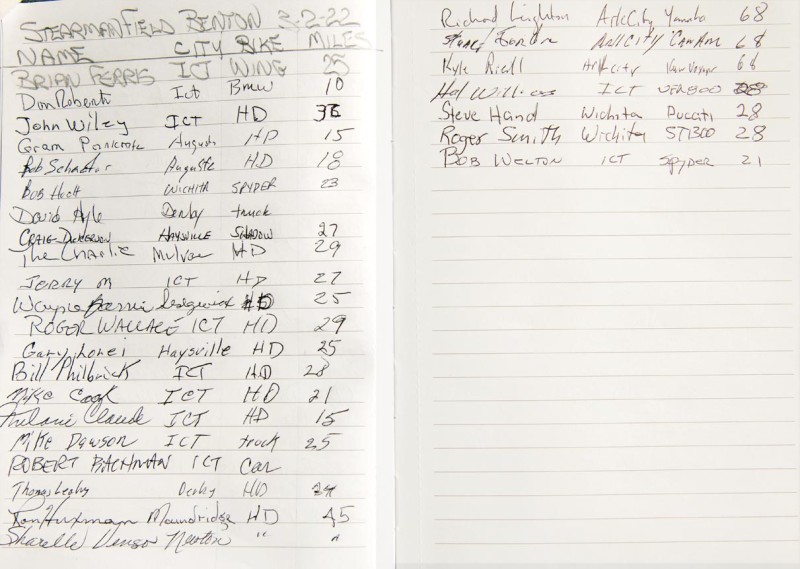 STEARMANFIELD BENTON 2-2-22
NAME CITY BIKE MILES
BRIAN FERRIS ICT WING 25
Don Roberts Ict Bmw 10
John Wiley ICT HD
Gram Augusta HD 15
Bob Augusta HD 18
BOB WICHITA SPYDER 23
David Kyle Derby truck
CRAIG DICKERSON HAYSVILLE SHADOW 27
The Charlie Mulvane HD 29
JERRY M ICT HD 27
Wayne Sedgwick HD 25
ROGER WALLACE ICT HD 29
Gary Haysville HD 25
Bill Philbrick ICT HD 28
Mike Cook ICT HD 21
Claude ICT HD 15
Mike Dawson ICT truck 25
ROBERT BACHMAN ICT Car
Thomas Leahy Derby HD
Ron Huxman Moundridge HD 45
Sharelle Newton " "
Richard Leighton Ark City Yamaha 68
Gordon Ark City Can Am 68
Kyle Ark City 68
Hal ICT
Steve Hand Wichita Ducati 28
Roger Smith Wichita ST1300 28
BOB WELTON ICT SPYDER 21